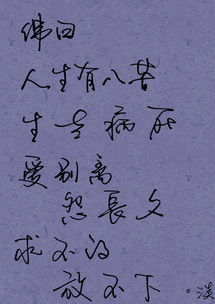 佛曰
人生有八苦
生老病死
爱别离
怨長久
求不得
放不下